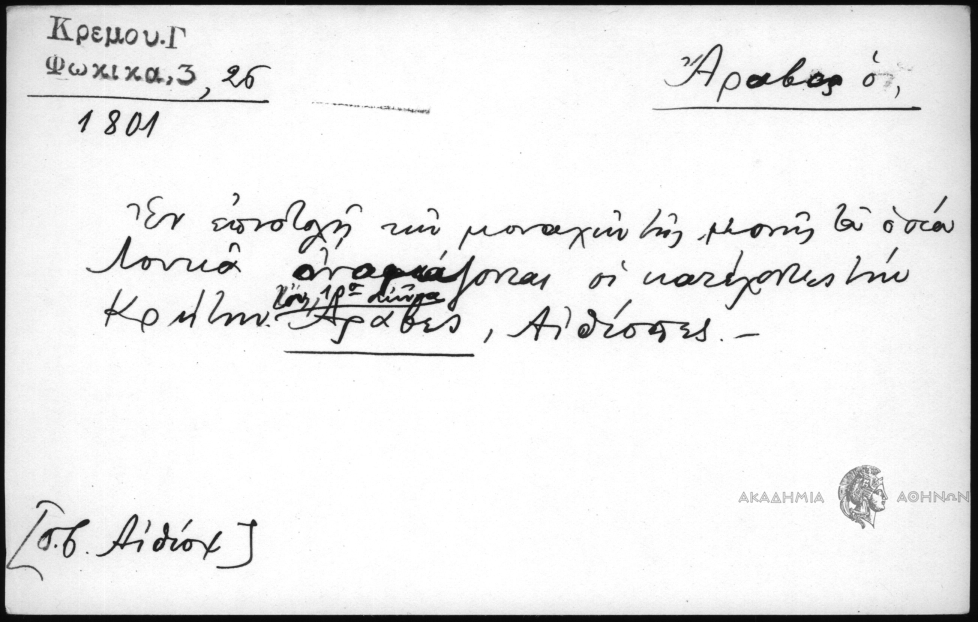 Κρεμου.Γ
Φωκικα,3, 26
1801
Ἄραβας ὁ,
Ἐν ἐπιστολῇ τῶν μοναχῶν τῆς μονῆς τοῦ ὁσίου
Λουκᾶ ὀνομάζονται οἱ κατέχοντες τὴν
τὸν 10ον αἰῶνα
Κρήτην Ἄραβες, Αἰθίοπες. –
[π.β. Αἰθίοψ]
ΑΚΑΔΗΜΙΑ ΑΘΗΝΩΝ